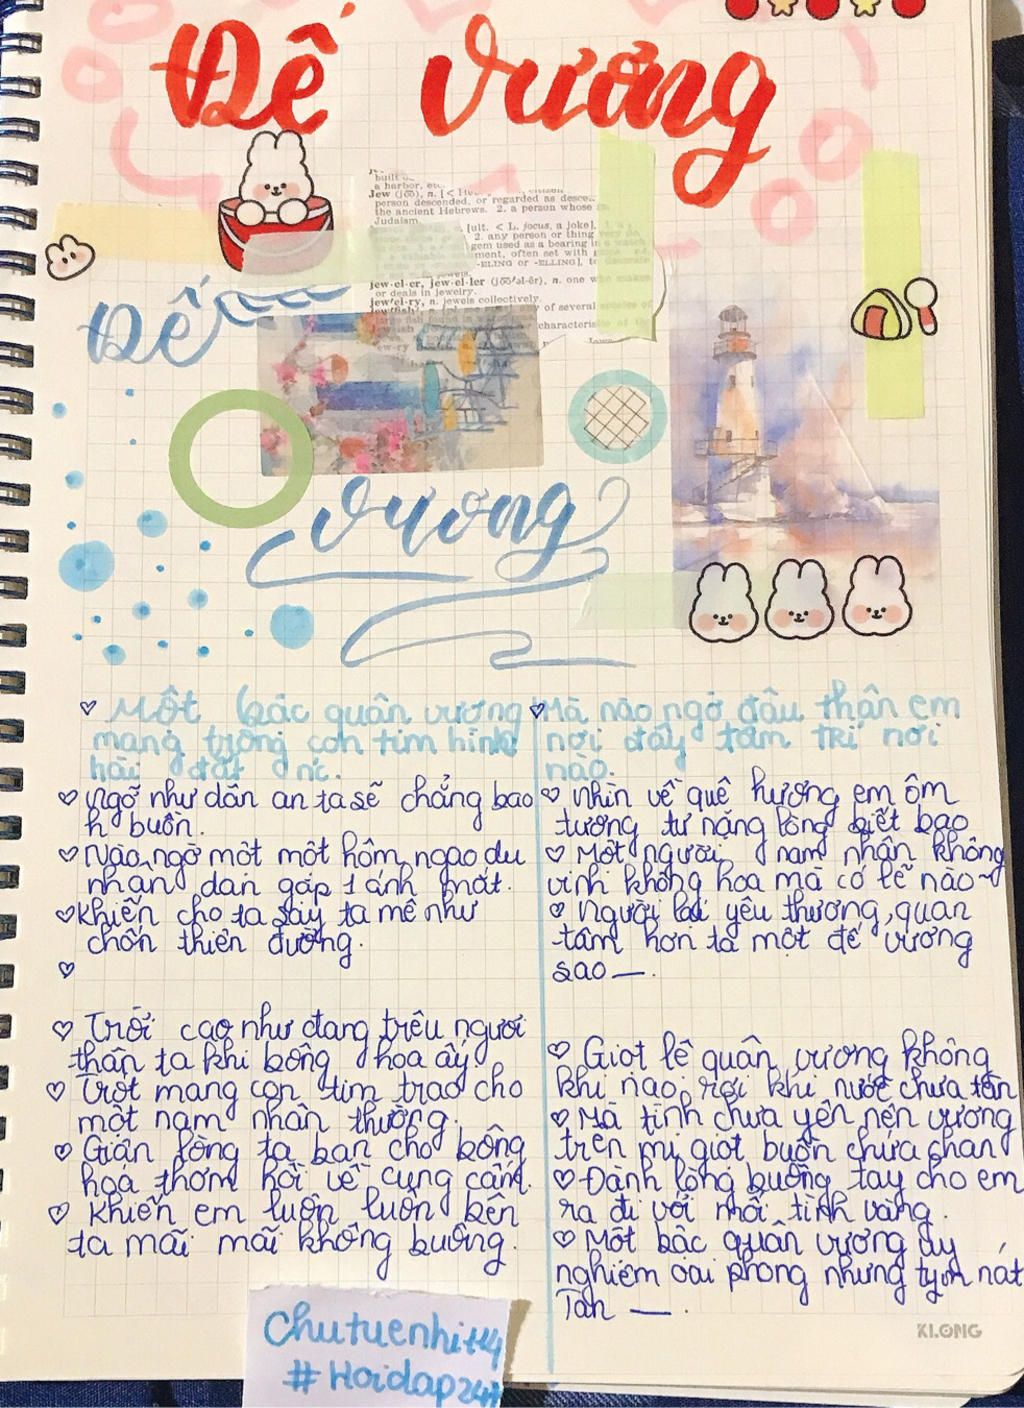 Đế Vương
built
a harbor, etc.
Jew (jōō), n. [<
person descended, or regarded as
the ancient Hebrews. 2. a person whose
Judaism.
[ult. < L. jocus, a joke],
2. any person or thing
gem used as a bearing in a watch
ment, often set with
-ELING or -ELLING], to decorate
jew·el·er, jew·el·ler (jōō'əl-ẽr), n. one who makes
or deals in jewelry.
jew·el·ry, n. jewels collectively.
of several species of
characteris
Đế
vương
Một bậc quân vương
mang trong con tim hình
hài đất nc.
Ngỡ như dân an ta sẽ chẳng bao
h buồn.
Nào ngờ một một hôm ngao du
nhân dan gặp 1 ánh mắt.
Khiến cho ta say ta mê như
chốn thiên đường.
Trời cao như đang trêu ngươi
thân ta khi bông hoa ấy.
Trót mang con tim trao cho
một nam nhân thường.
Giận lòng ta ban cho bông
hoa thơm hồi về cung cấm.
Khiến em luôn luôn bên
ta mãi mãi không buông.
Mà nào ngờ đâu thân em
nơi đây tâm trí nơi
nào.
Nhìn về quê hương em ôm
tương tư nặng lòng biết bao
Một người nam nhân không
vinh không hoa mà có lẽ nào~
Người lại yêu thương, quan
tâm hơn ta một đế vương
sao—.
Giọt lệ quân vương không
khi nào rơi khi nước chưa tàn
Mà tình chưa yên nên vương
trên mi giọt buồn chứa chan
Đành lòng buông tay cho em
ra đi với mối tình vàng.
Một bậc quân vương uy
nghiêm oai phong nhưng tym nát
Tan —.
KLONG
Chutuenhi
#Hoidap247